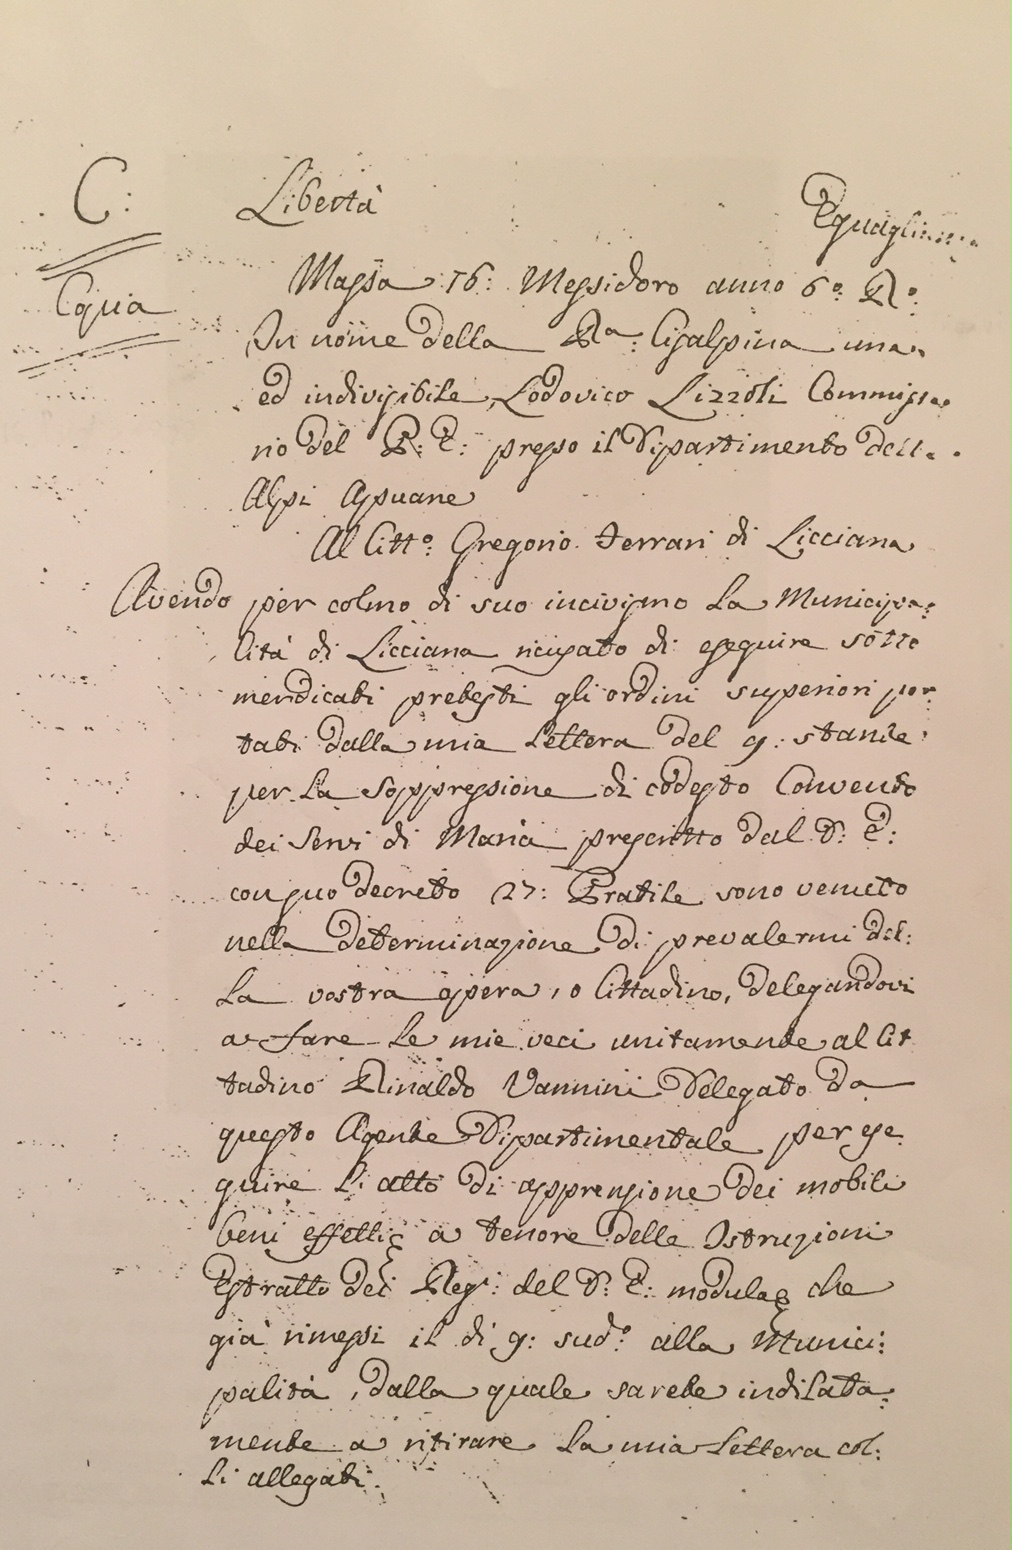 C:
Libertà Eguaglian
Copia
Massa 16: Messidoro anno 6º. Rº.
In nome della Rª: Cisalpina una
ed indivisibile, Lodovico Lizzoli Commissa
rio del P: E: presso il Dipartimento dell
Alpi Apuane
Al Cittº: Gregorio Ferrari di Licciana
Avendo per colmo di suo incivismo la Municipa:
lità di Licciana ricusato di eseguire sotto
mendicati pretesti gli ordini superiori por
tati dalla mia Lettera del 9: stante
per la soppressione di codesto Convento
dei Servi di Maria prescritto dal D: E:
con suo Decreto 27: Pratile sono venuto
nella determinazione di prevalermi del:
la vostra opera, o Cittadino, delegandovi
a fare le mie veci unitamente al Cit
tadino Rinaldo Vannini Delegato da
questo Agente Dipartimentale per ese
guire li atto di apprensione dei mobili
beni effetti a tenore delle Istruzioni
Estratto dei Regi: del D: E: modula che
già rimessi il dì 9: sudº alla Munici:
palità, dalla quale sarete indilata:
mente a ritirare la mia Lettera col:
li allegati.